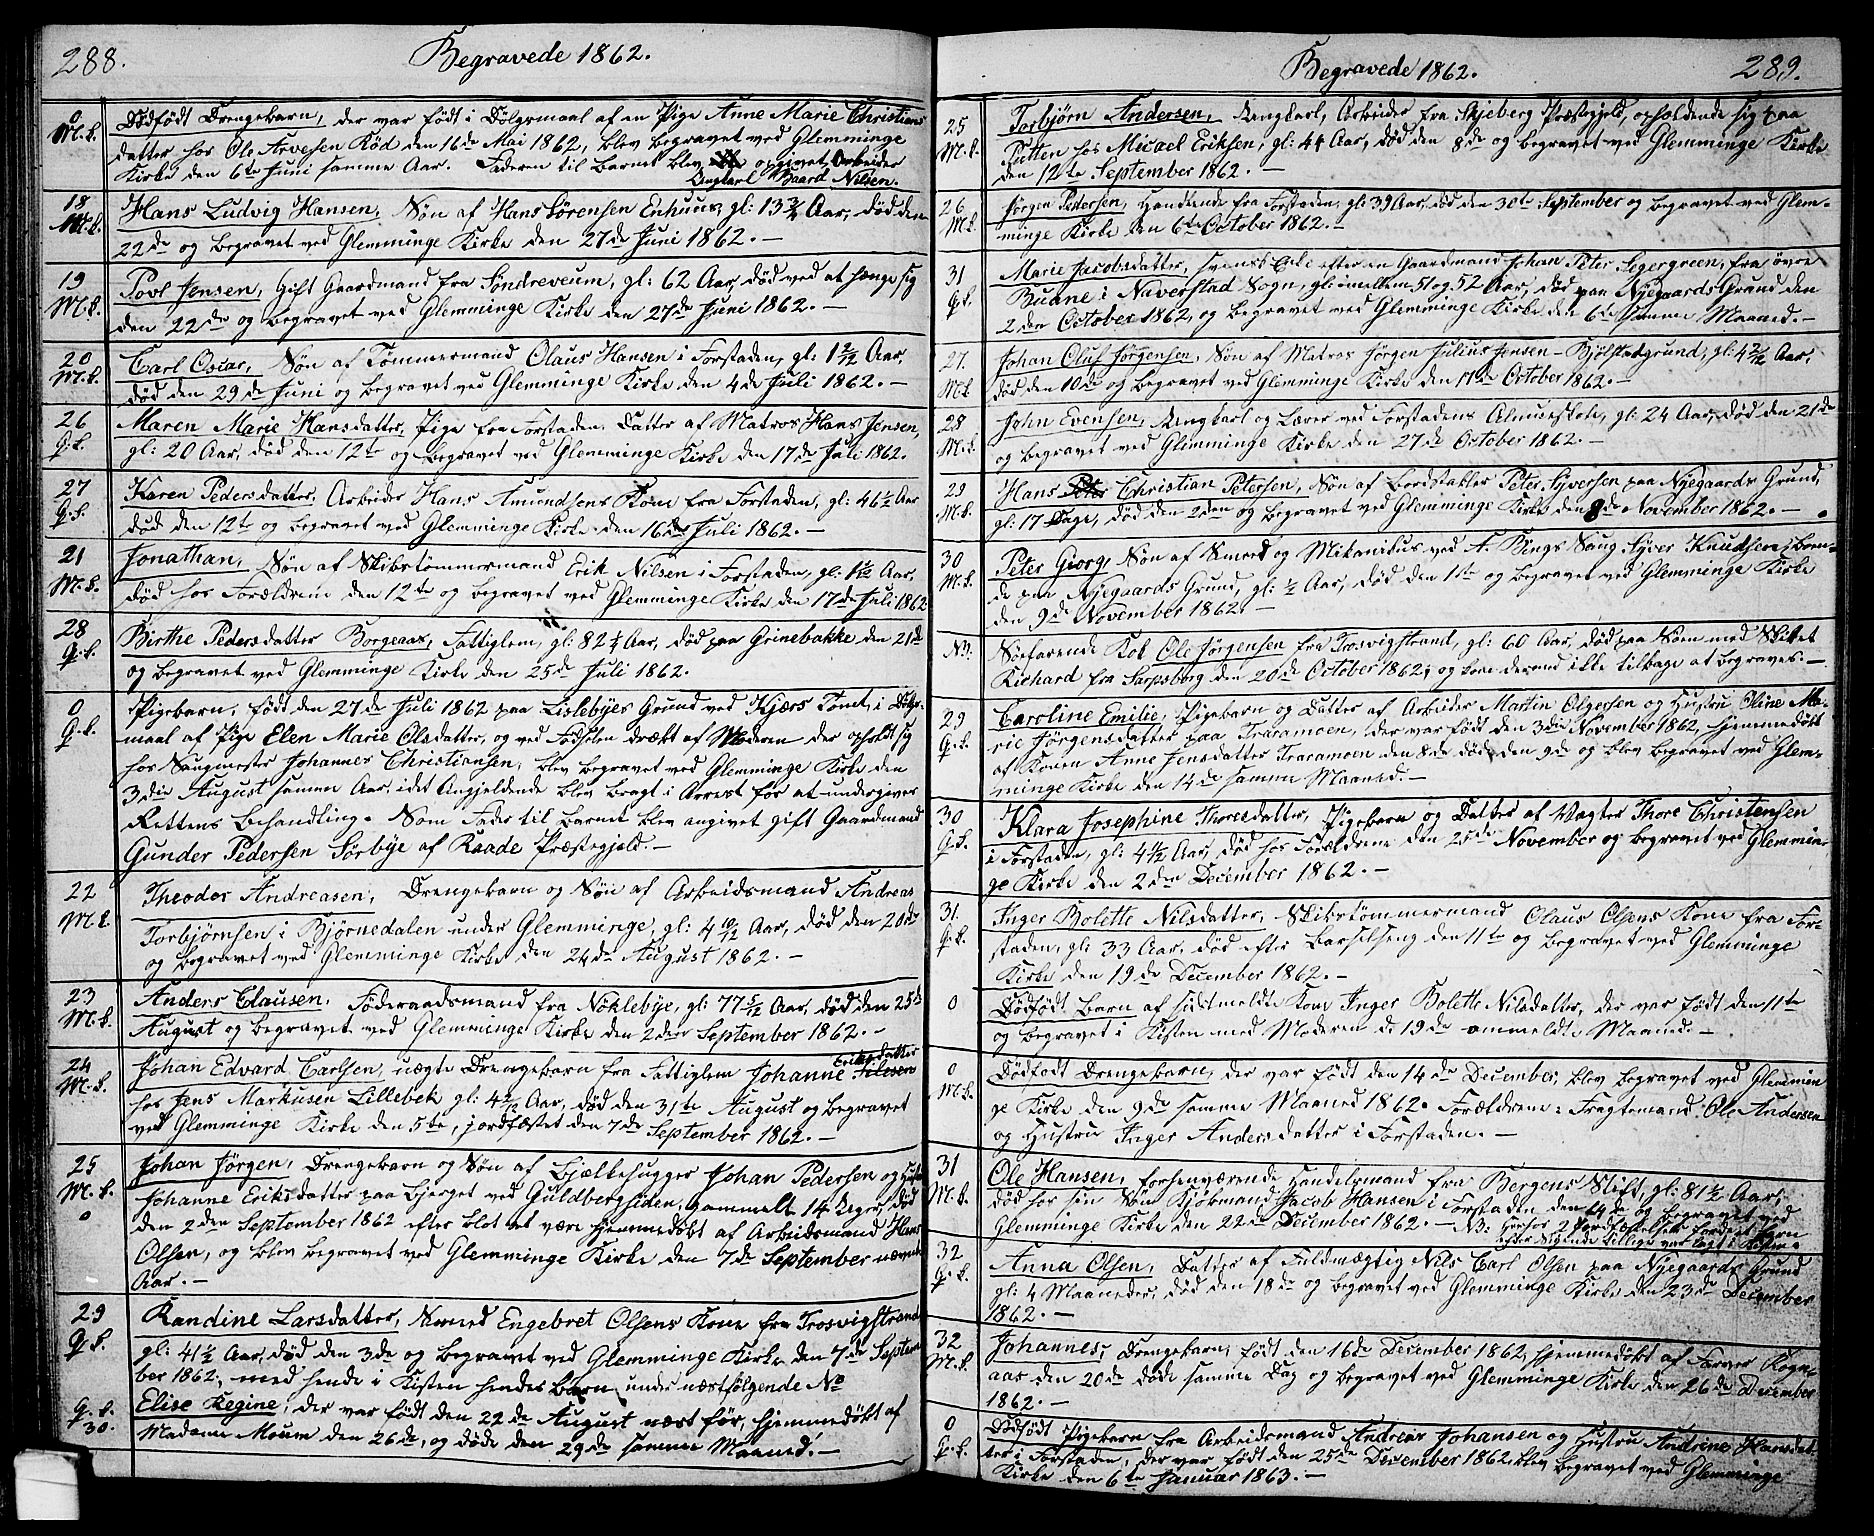 288.
Begravede 1862.
0
M.K.
Dödfödt Drengebarn, der var födt i Dölgsmaal af en Pige Anne Marie Christians
datter hos Ole Arvesen Röd den 16de Mai 1862, blev begravet ved Glemminge
Kirke den 6te Juni samme Aar. Faderen til Barnet blev opgivet Arbeider
Ungkarl Baard Nilsen.
18
M.K.
Hans Ludvig Hansen, Sön af Hans Sörensen Enhuus, gl: 13 3/4 Aar, död den
22de og begravet ved Glemminge Kirke den 27de Juni 1862. –
19
M.K.
Povl Jensen, Gift Gaardmand fra Söndreveum, gl: 62 Aar, död ved at hænge sig
den 22de og begravet ved Glemminge Kirke den 27de Juni 1862. –
20
M.K.
Carl Oscar, Sön af Tömmermand Olaus Hansen i Forstaden, gl: 1 2/12 Aar,
död den 29de Juni og begravet ved Glemminge Kirke den 4de Juli 1862. –
26
Q.K.
Maren Marie Hansdatter, Pige fra Forstaden, Datter af Matros Hans Jensen,
gl: 20 Aar, död den 12te og begravet ved Glemminge Kirke den 17de Juli 1862.
27
Q.K.
Karen Pedersdatter, Arbeider Hans Amundsens Kone fra Forstaden, gl: 46 1/2 Aar
död den 12te og begravet ved Glemminge Kirke den 16de Juli 1862. –
21
M.K.
Jonathan, Sön af Skibstömmermand Erik Nilsen i Forstaden, gl: 1 1/12 Aar,
död hos Forældrene den 12te og begravet ved Glemminge Kirke den 17de Juli 1862
28
Q.K.
Birthe Pedersdatter Borgeaas, Fattiglem, gl: 82 1/4 Aar, död paa Grinebakke den 21de
og begravet ved Glemminge Kirke den 25de Juli 1862.
0
Q.K.
Pigebarn, födt den 27de Juli 1862 paa Lislebyes Grund ved Kjærs Tomt, i Dölgs-
maal af Pige Elen Marie Olsdatter, og ved Födselen dræbt af Moderen der opholdt sig
hos Saugmester Johannes Christiansen, blev begravet ved Glemminge Kirke den
3die August samme Aar, idet Angjeldende blev bragt i Arrest for at undergives
Rettens Behandling. Som Fader til Barnet blev angivet gift Gaardmand
Gunder Pedersen Sörbye af Raade Præstegjeld. –
22
M.K.
Theodor Andreasen, Drengebarn og Sön af Arbeidsmand Andreas
Torbjörnsen i Björnedalen under Glemminge, gl: 4 10/12 Aar, död den 20de
og begravet ved Glemminge Kirke den 24de August 1862. –
23
M.K.
Anders Clausen, Föderaadsmand fra Nöklebye, gl: 77 5/12 Aar, död den 25de
August og begravet ved Glemminge Kirke den 2den September 1862. –
24
M.K.
Johan Edvard Carlsen, uægte Drengebarn fra Fattiglem Johanne Eriksdatter
hos Jens Markusen Lillebek gl: 4 2/12 Aar, död den 31te August og begravet
ved Glemminge Kirke den 5te, jordfæstet den 7de September 1862. –
25
M.K.
0
Johan Jörgen, Drengebarn og Sön af Bjælkehugger Johan Pedersen og Hustru
Johanne Eriksdatter paa Bjerget ved Guldbergsiden, gammelt 14 Uger, död
den 2den September 1862 efter blot at være hjemmedöbt af Arbeidsmand Hans
Olsen, og blev begravet ved Glemminge Kirke den 7de September nævnte
Aar. –
29
Q.K.
Randine Larsdatter, Nomed Engebret Olsens Kone fra Trosvigstrand
gl: 41 1/2 Aar, död den 3de og begravet ved Glemminge Kirke den 7de Septem
ber 1862, med hende i Kisten hendes Barn under næstfölgende No
Q.K.
30.
Elise Regine, der var födt den 22de August næst för, hjemmedöbt af
Madame Moum den 26de, og döde den 29de samme Maaned. –
Begravede 1862.
289.
25
M.K.
Torbjörn Andersen, Ungkarl, Arbeider fra Skjeberg Præstegjeld, opholdende sig paa
Putten hos Micael Eriksen, gl: 44 Aar, död den 8de og begravet ved Glemminge Kirke
den 12te September 1862. –
26
M.K.
Jörgen Petersen, Handlende fra Forstaden, gl: 39 Aar, död den 30te September og begravet ved Glem-
minge Kirke den 6te October 1862. –
31
Q.K.
Marie Jacobsdatter, svensk Enke efter en Gaardmand Johan Peter Segergreen, fra övre
Buane i Naverstad Sogn, gl: imellem 51 og 52 Aar, död paa Nyegaards Grund den
2den October 1862, og begravet ved Glemminge Kirke den 6te samme Maaned. –
27.
M.K.
Johan Oluf Jörgensen, Sön af Matros Jörgen Julius Jensen – Bjölstadgrund, gl: 4 2/12 Aar,
död den 10de og begravet ved Glemminge Kirke den 17de October 1862. –
28
M.K.
John Evensen, Ungkarl og Lærer ved Forstadens Almueskole, gl: 24 Aar, död den 21de
og begravet ved Glemminge Kirke den 27de October 1862. –
29
M.K.
Hans Christian Petersen, Sön af Bordstabler Peter Syversen paa Nyegaards Grund,
gl: 17 Dage, död den 2den og begravet ved Glemminge Kirke den 8de November 1862. –
30
M.K.
Peter Georg, Sön af Smed og Mekanikus ved A. Bings Saug, Syver Knudsen, boen-
de paa Nyegaards Grund, gl: 1/2 Aar, död den 1ste og begravet ved Glemminge Kirke
den 9de November 1862. –
NB.
Söefarende Kok Ole Jörgensen fra Trosvigstrand, gl: 60 Aar, död paa Söen med Skibet
Richard fra Sarpsborg den 20de October 1862, og kom derved ikke tilbage at begraves. –
29
Q.K.
Caroline Emilie, Pigebarn og Datter af Arbeider Martin Olgersen og Hustru Oline Ma-
rie Jörgensdatter paa Traramoen, der var födt den 3die November 1862, hjemmedöbt
af Konen Anne Jensdatter Traramoen den 8de, döde den 9de og blev begravet ved Glem-
minge Kirke den 14de samme Maaned. –
30
Q.K.
Klara Josephine Thoresdatter, Pigebarn og Datter af Vagter Thore Christensen
i Forstaden, gl: 4 1/2 Aar, död hos Forældrene den 25de November og begravet ved Glemmin-
ge Kirke den 2den December 1862. –
31.
Q.K.
Inger Bolette Nilsdatter, Skibstömmermand Olaus Olsens Kone fra For-
staden, gl: 33 Aar, död efter Barselseng den 11te og begravet ved Glemminge
Kirke den 19de December 1862. –
0
Dödfödt Barn af sidstmeldte Kone Inger Bolette Nilsdatter, der var födt den 11te
og begravet i Kisten med Moderen d: 19de ommeldte Maaned. –
0
M.K.
Dödfödt Drengebarn, der var födt den 14de December, blev begravet ved Glemmin
ge Kirke den 9de samme Maaned 1862. Forældrene: Fragtemand Ole Andersen
og Hustru Inger Andersdatter i Forstaden. –
31
M.K.
Ole Hansen, forhenværende Handelsmand fra Bergens Stift, gl: 81 1/2 Aar,
död hos sin Sön Kjöbmand Jacob Hansen i Forstaden den 14de og begravet ved
Glemminge Kirke den 22de December 1862. – NB: Herfor 2 Jordfæstelser fordi et Barn
efter Sigende tillige var lagt i Kisten.
32
Q.K.
Anna Olsen, Datter af Fuldmægtig Nils Carl Olsen paa Nyegaards Grund
gl: 4 Maaneder, död den 18de og begravet ved Glemminge Kirke den 23de December
1862. –
32
M.K.
Johannes, Drengebarn, födt den 16de December 1862, hjemmedöbt af Farver Rogn-
aas den 20de döde samme Dag og begravet ved Glemminge Kirke den 26de December
1862. –
0
Q.K.
Dödfödt Pigebarn fra Arbeidsmand Andreas Johansen og Hustru Andrine Hansdat-
ter i Forstaden, der var födt den 25de December 1862, blev begravet ved Glemminge
Kirke den 6te Januar 1863. –